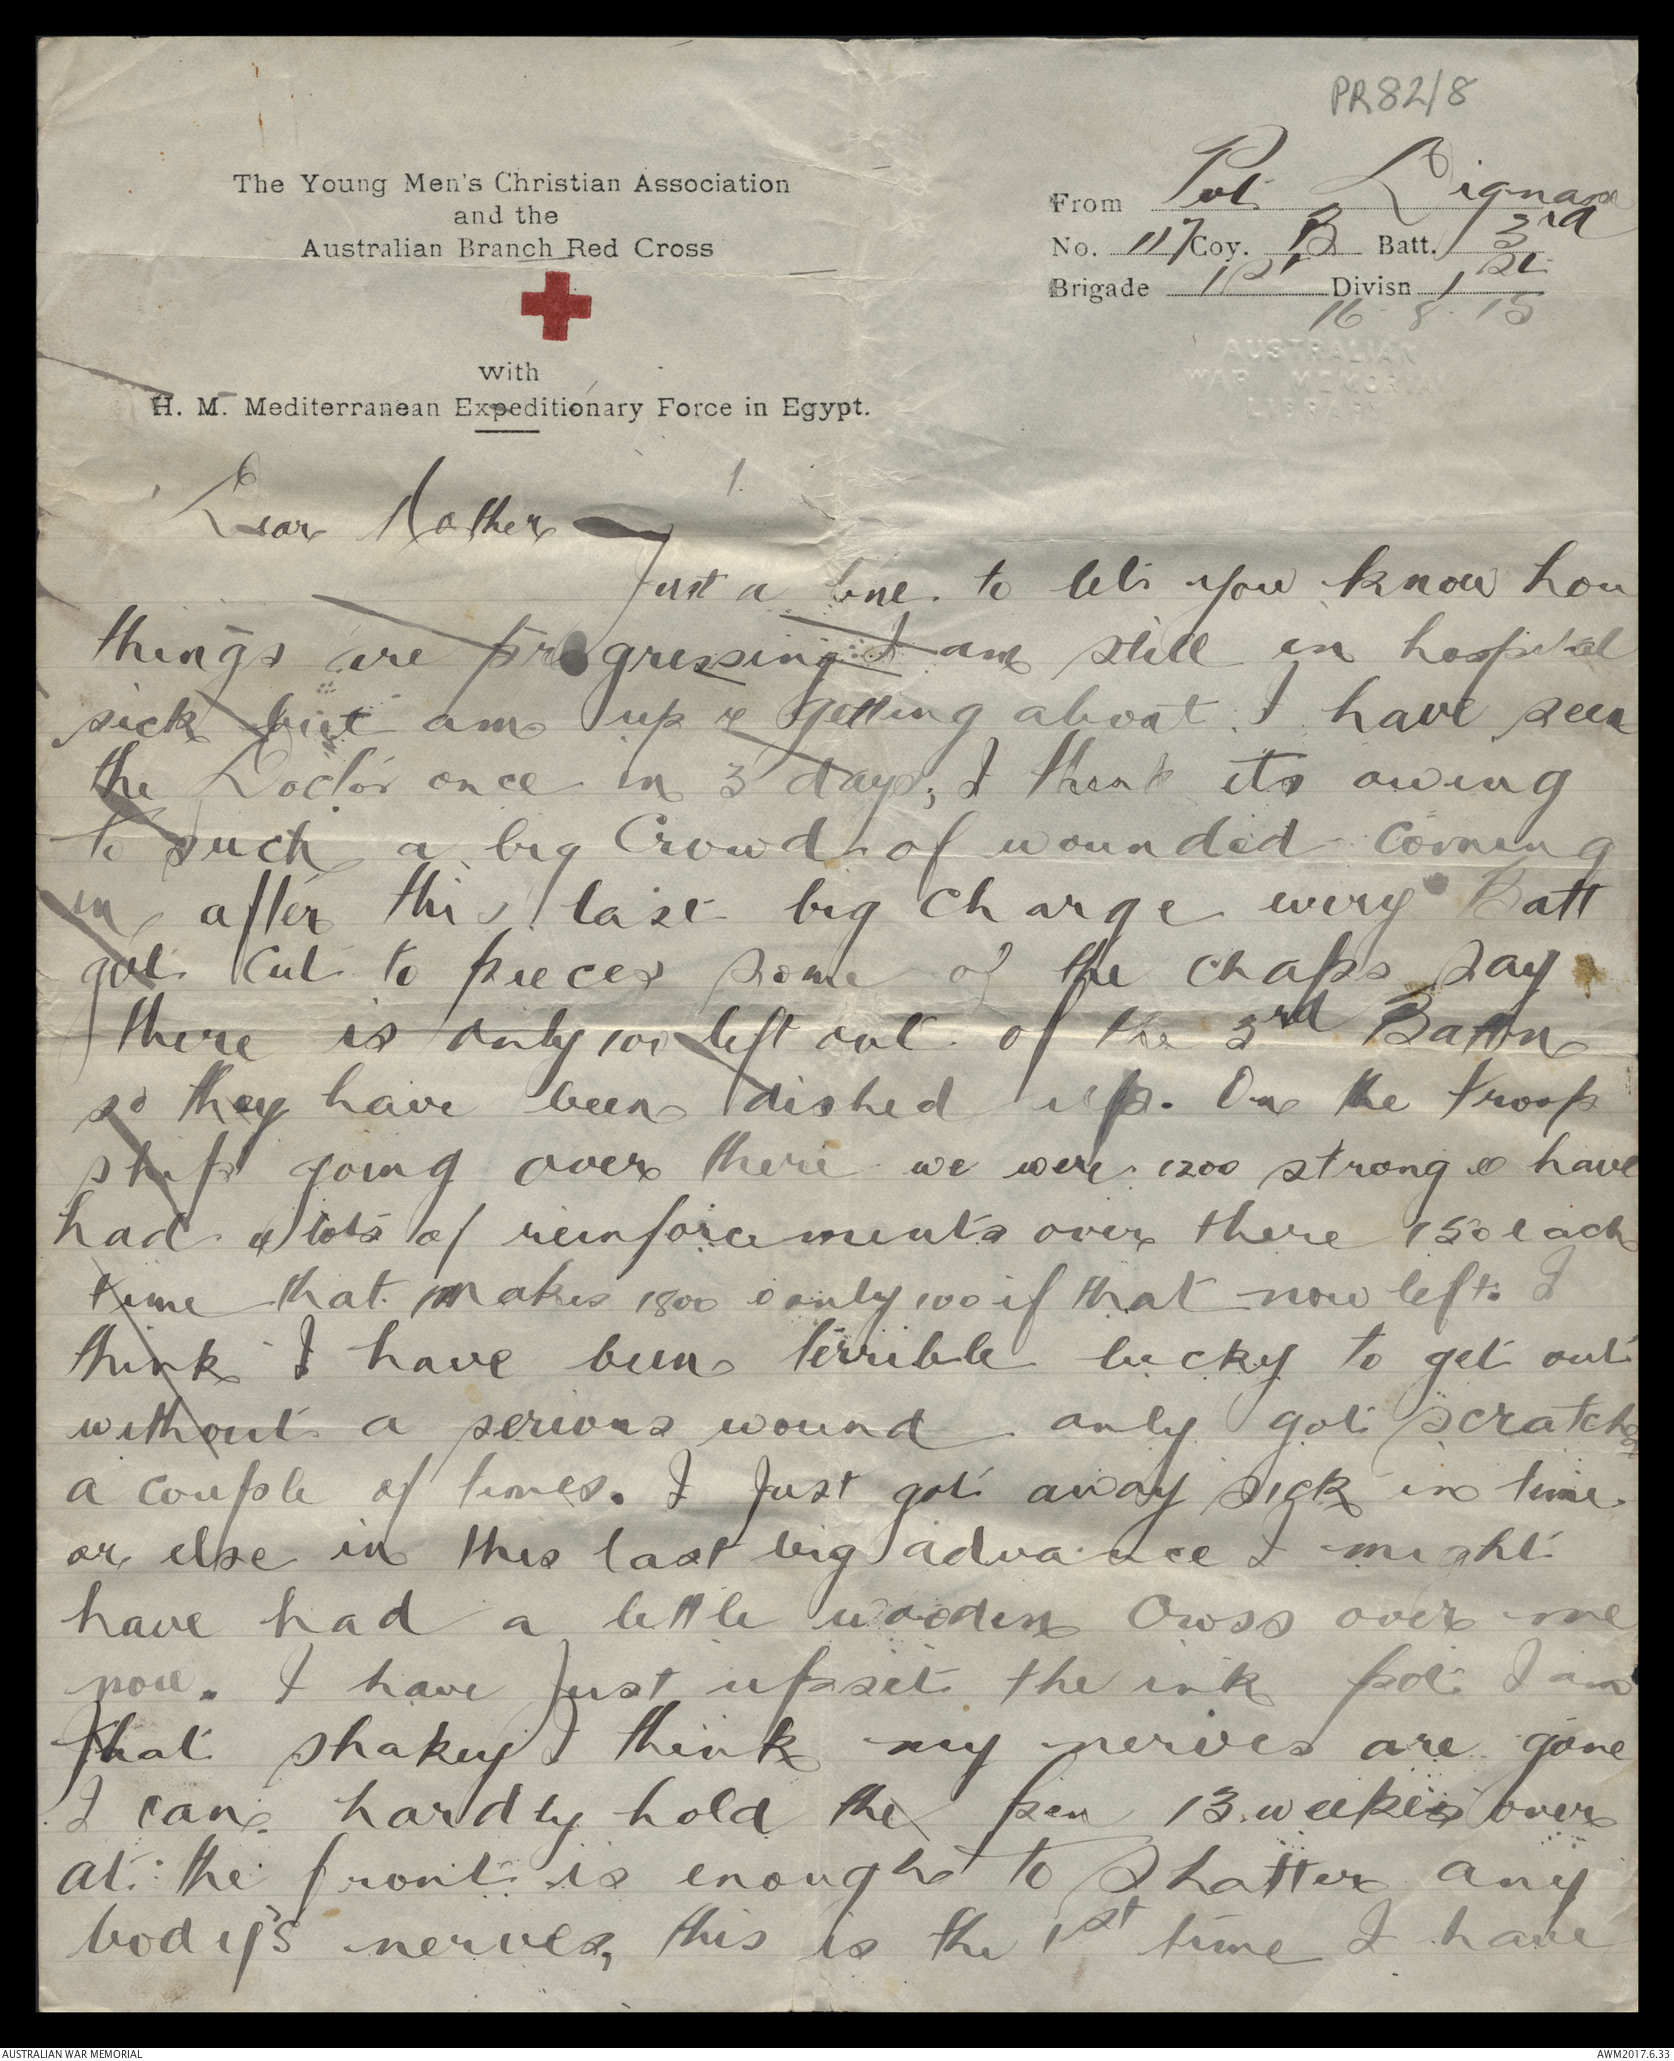 PR82/8
The Young Men's Christian Association
and the
Australian Branch Red Cross
with
H. M. Mediterranean Expeditionary Force in Egypt.
From Pvt Dignam
No. 1117 Coy. B Batt. 3rd
Brigade 1st Divisn 1st
16-8-15
AUSTRALIAN
WAR MEMORIAL
LIBRARY
1.
Dear Mother
Just a line to let you know how
things are progressing I am still in hospital
sick but am up & getting about. I have seen
the Doctor once in 3 days, I think its owing
to such a big Crowd of wounded coming
in after this last big charge every Batt
got cut to pieces some of the chaps say
there is only 100 left out of the 3rd Battn
so they have been dished up. On the troop
ship going over there we were 1200 strong & have
had lots of reinforcements over there 150 each
time that makes 1800 & only 100 if that now left. I
think I have been terrible lucky to get out
without a serious wound only got scratched
a couple of times. I Just got away sick in time
or else in this last big advance I might
have had a little wooden Cross over me
now. I have Just upset the ink pot I am
that shakey I think my nerves are gone
I can hardly hold the pen 13 weeks over
at the front is enough to shatter any
body's nerves, this is the 1st time I have
AUSTRALIAN WAR MEMORIAL
AWM2017.6.33